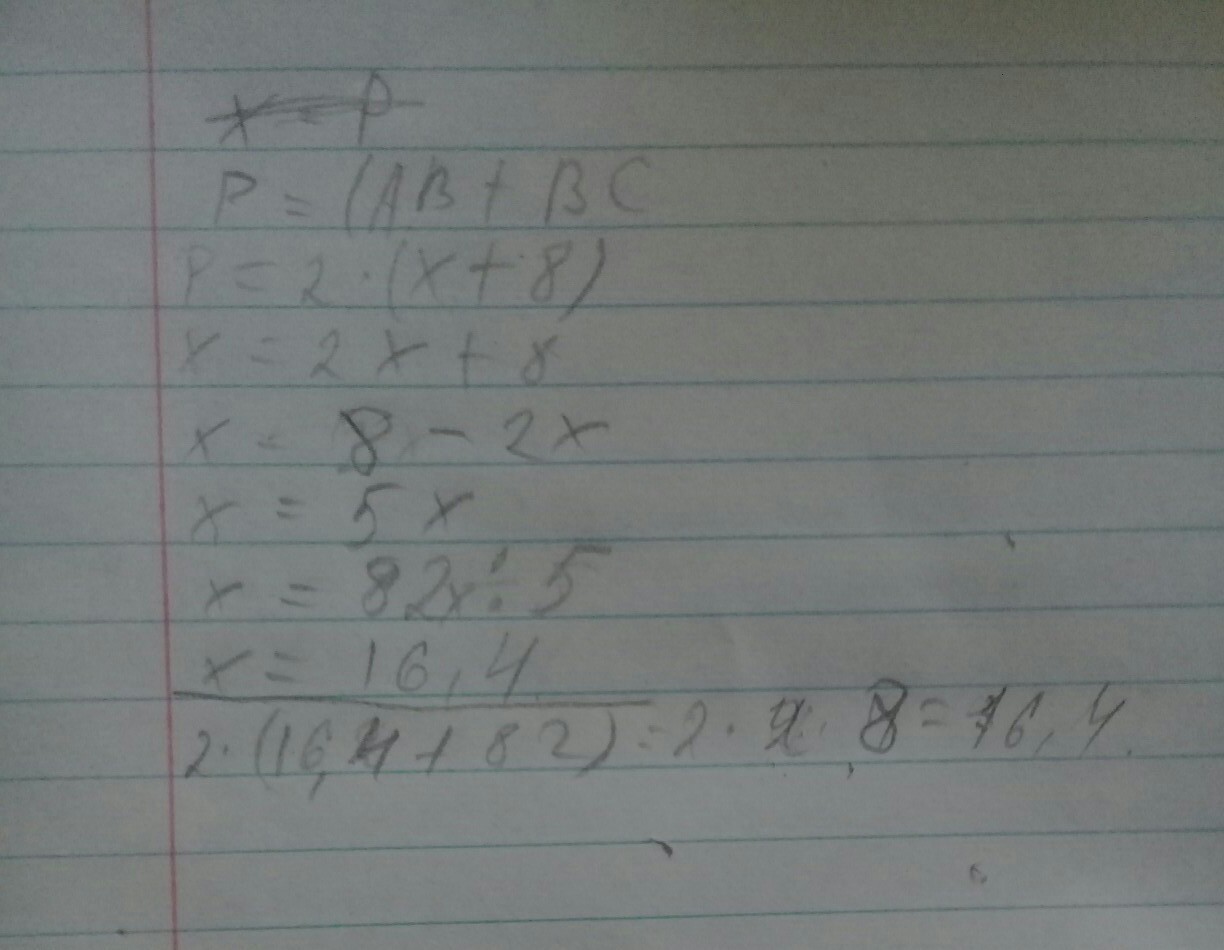 P = (AB + BC
P = 2 · (x + 8)
x = 2x + 8
x = 8 - 2x
x = 5x
x = 82x ÷ 5
x = 16,4
2 · (16,4 + 82) = 2 · 8 = 16,4.